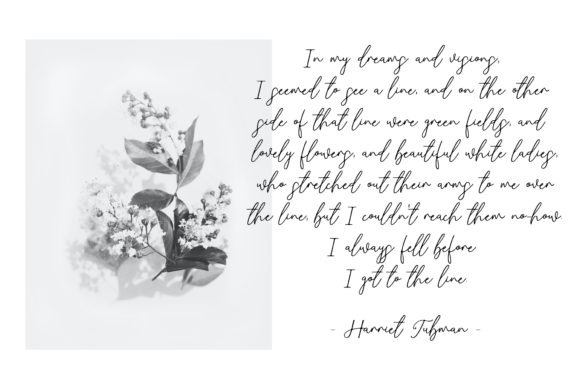 In my dreams and visions,
I seemed to see a line, and on the other
side of that line were green fields, and
lovely flowers, and beautiful white ladies,
who stretched out their arms to me over
the line, but I couldn't reach them no-how.
I always fell before
I got to the line.
- Harriet Tubman -